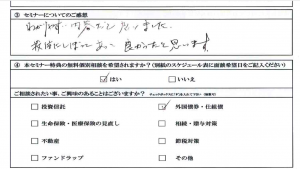 ③ セミナーについてのご感想
わかりやすい内容だと思いました。
良かったと思います
④ 本セミナー特典の無料個別相談を希望されますか?(別紙のスケジュール表に面談希望日をご記入ください)
☑はい □いいえ
ご相談されたい事、ご興味のあることはございますか?
□ 投資信託 ☑ 外国債券・仕組債
□ 生命保険・医療保険の見直し □ 相続・贈与対策
□ 不動産 □ 節税対策
□ ファンドラップ □ その他